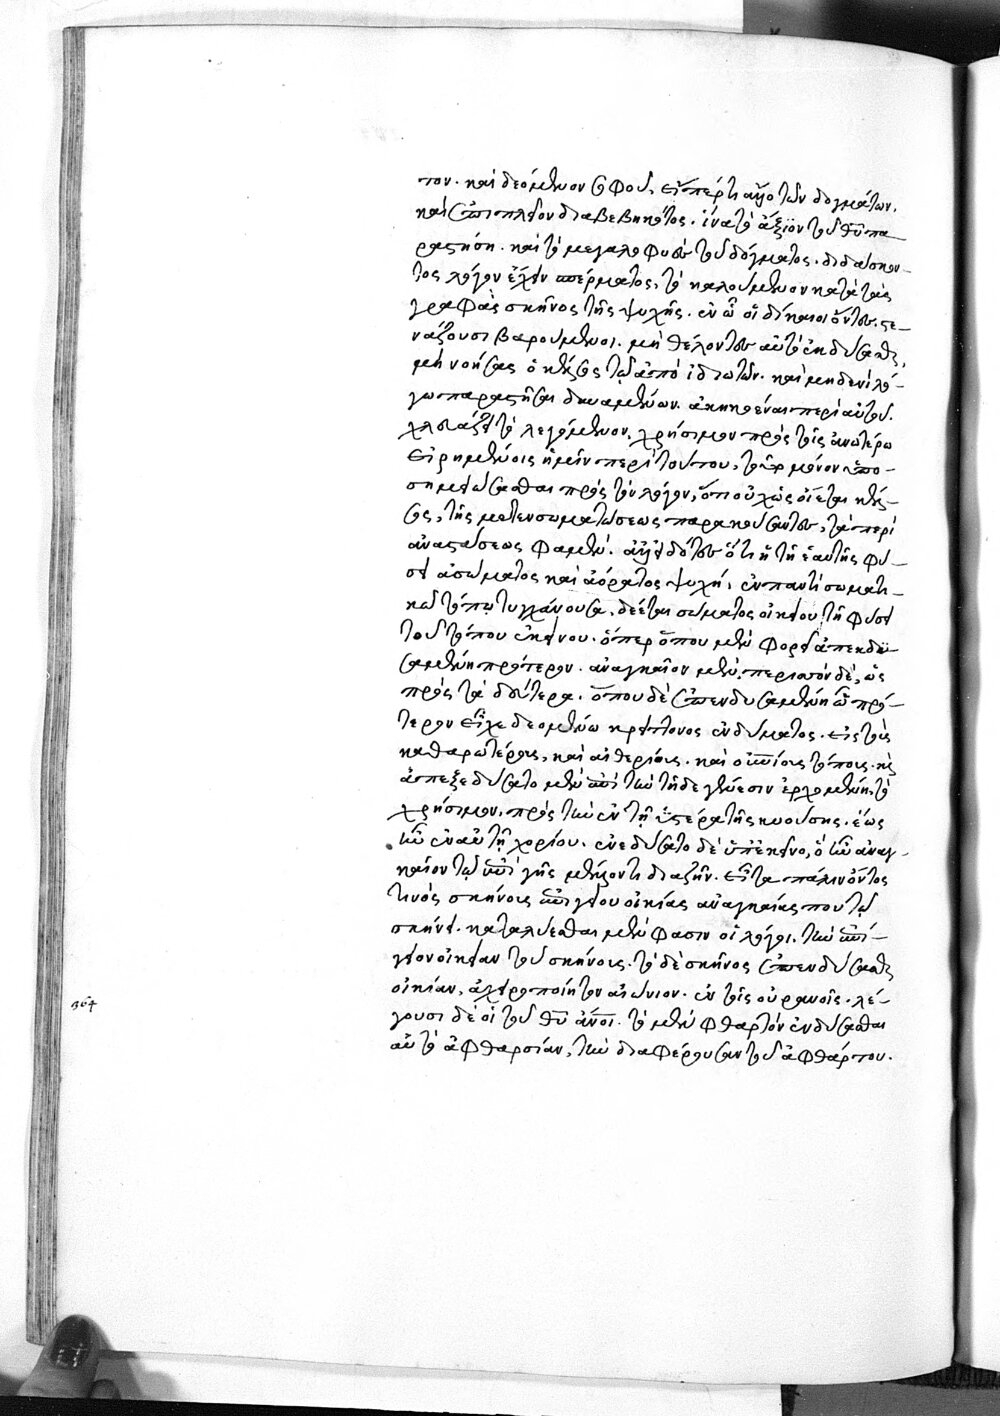 που. καὶ δεόμενον σοφοῦ, εἴπερ τι ἄλλο τῶν δογμάτων.
καὶ ἐπιπλέον διαβεβηκότος. ἵνα τὸ ἄξιον τοῦ θῦ πα
ραστήση. καὶ τὸ μεγαλοφυὲς τοῦ δόγματος. διδάσκον-
τος λόγον ἔχειν σπέρματος, τὸ καλούμενον κατὰ τὰς
γραφὰς σκῆνος τῆς ψυχῆς. ἐν ὧ οἱ δίκαιοι ὄντες στε-
νάζουσι βαρούμενοι. μὴ θέλοντες αὐτὸ ἐκδύσασθαι,
μὴ νοήσας ὁ κέλσος τῶ ἀπὸ ἰδιωτῶν. καὶ μηδενὶ λό-
γω παραστῆσαι δυναμένων. ἀκηκοέναι περὶ αὐτοῦ.
χλευάζει τὸ λεγόμενον. χρήσιμον πρὸς τοῖς ἀνωτέρω
εἰρημένοις ἡμῖν περὶ τούτου, τοῦτο μόνον ὑπο-
σημειώσασθαι πρὸς τὸν λόγον, ὅτι οὐχ ὡς οἴεται κέλ-
σος, τῆς μετενσωματώσεως παρακούσαντες, τὰ περὶ
ἀναστάσεως φαμέν. ἀλλ' εἰδότες ὅτι ἡ τῆ ἑαυτῆς φύ-
σει ἀσώματος καὶ ἀόρατος ψυχὴ, ἐν παντὶ σωματι-
κῶ τόπω τυγχάνουσα, δέεται σώματος οἰκείου τῆ φύσει
τοῦ τόπου ἐκείνου. ὅπερ ὅπου μὲν φορεῖ ἀπεκδυ-
σαμένη πρότερον. ἀναγκαῖον μὲν, περισσὸν δὲ, ὡς
πρὸς τὰ δεύτερα. ὅπου δὲ ἐπενδυσαμένη ὧ πρό-
τερον εἶχε δεομένω κρείττονος ἐνδύματος. εἰς τοὺς
καθαρωτέρους, καὶ αἰθερίους. καὶ οὐνίους τόπους. καὶ
ἀπεξεδύσατο μὲν ἐπὶ τὴν τῆδε γένεσιν ἐρχομένη, τὸ
χρήσιμον, πρὸς τὴν ἐν τῆ ὑστέρα τῆς κυούσης. ἕως
ἦν ἐν αὐτῆ χορίου. ἐνεδύσατο δὲ ὑπ' ἐκεῖνο, ὃ ἦν ἀναγ-
καῖον τῶ ἐπὶ γῆς μέλλοντι διαζῆν. εἶτα πάλιν ὄντος
τινὸς σκήνους ἐπιγείου οἰκίας ἀναγκαίας που τῶ
σκήνει. καταλύεσθαι μέν φασιν οἱ λόγοι. τὴν ἐπί-
γειον οἰκίαν τοῦ σκήνους. τὸ δὲ σκῆνος ἐπενδύσασθαι
οἰκίαν, ἀχειροποίητον αἰώνιον. ἐν τοῖς οὐρανοῖς. λέ-
γουσι δὲ οἱ τοῦ θῦ ἄνοι. τὸ μὲν φθαρτὸν ἐνδύσασθαι
αὖ τὸ ἀφθαρσίαν, τὴν διαφέρουσαν τοῦ ἀφθάρτου.
364